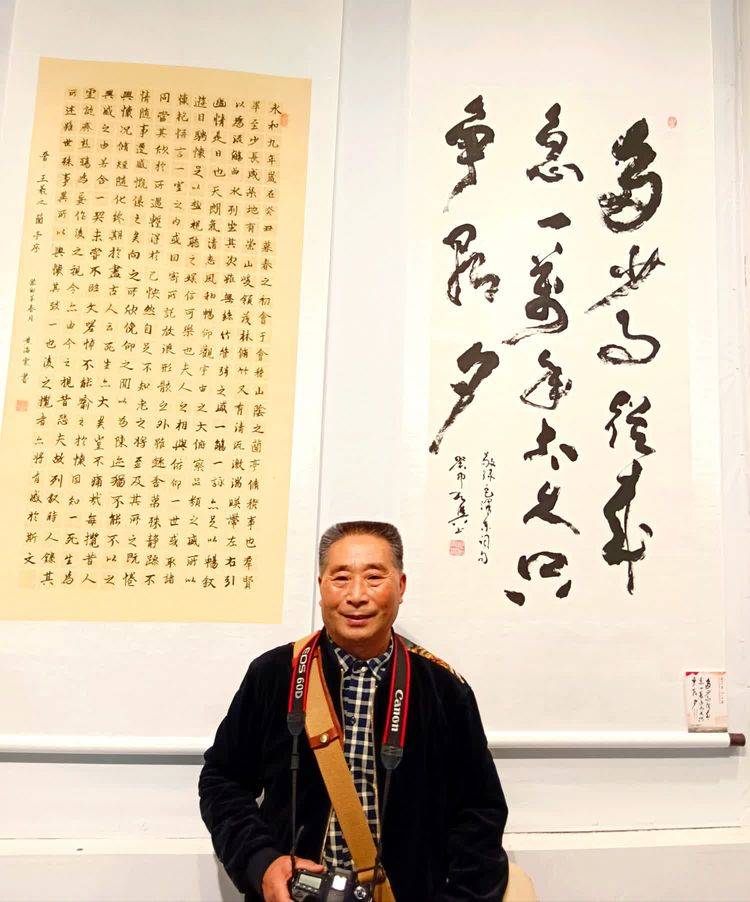 永和九年歲在癸丑暮春之初會于會稽山陰之蘭亭脩稧事也羣賢
畢至少長咸集此地有崇山峻領茂林脩竹又有清流激湍暎帶左右引
以為流觴曲水列坐其次雖無絲竹管弦之盛一觴一詠亦足以暢叙
幽情是日也天朗氣清惠風和暢仰觀宇宙之大俯察品類之盛所以
遊目騁懷足以極視聽之娛信可樂也夫人之相與俯仰一世或取諸
懷抱悟言一室之內或因寄所託放浪形骸之外雖趣舍萬殊靜躁不
同當其欣於所遇蹔得於己快然自足不知老之將至及其所之既惓
情隨事遷感慨係之矣向之所欣俛仰之間以為陳迹猶不能不以之
興懷況脩短隨化終期於盡古人云死生亦大矣豈不痛哉每攬昔人
興感之由若合一契未嘗不臨文嗟悼不能喻之於懷固知一死生為
虛誕齊彭殤為妄作後之視今亦由今之視昔悲夫故列叙時人錄其
所述雖世殊事異所以興懷其致一也後之攬者亦將有感於斯文
晉 王羲之 蘭亭序
春月 黃海雲 書
多少事從來
急一萬年太久只
争朝夕
敬录毛澤東詞句
癸卯
EOS 60D
Canon